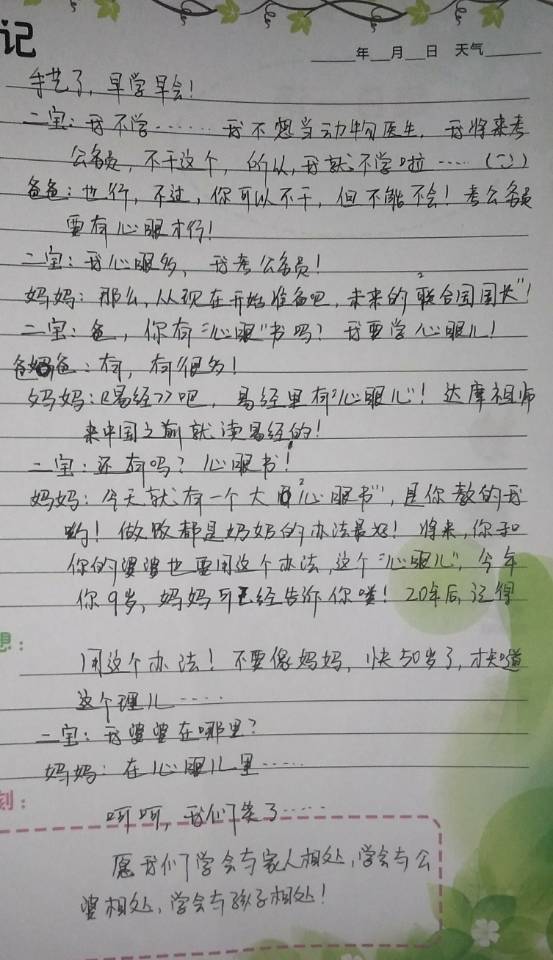 记
年 月 日 天气
手艺了,早学早会!
二宝:我不学……我不想当动物医生,我将来考
公务员,不干这个,所以,我就不学啦……(二)
爸爸:也行,不过,你可以不干,但不能不会!考公务员
要有心眼才行!
二宝:我心眼多,我考公务员!
妈妈:那么,从现在开始准备吧,未来的“联合国国长”!
二宝:爸,你有“心眼”书吗?我要学心眼儿!
爸爸:有,有很多!
妈妈:《易经》吧,易经里有“心眼儿”!达摩祖师
来中国之前就读易经的!
二宝:还有吗?心眼书!
妈妈:今天就有一个大“心眼书”,是你教的我
哟!做饭都是妈妈的办法最好!将来,你和
你的婆婆也要用这个办法,这个“心眼儿”,今年
你9岁,妈妈可已经告诉你喽!20年后记得
想:
用这个办法!不要像妈妈,快50岁了,才知道
这个理儿……
二宝:我婆婆在哪里?
妈妈:在心眼儿里……
刻:
呵呵,我们笑了……
愿我们学会与家人相处,学会与公
婆相处,学会与孩子相处!